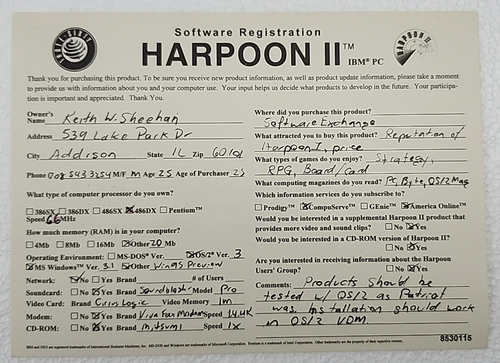 Software Registration
HARPOON II™ IBM® PC
Thank you for purchasing this product. To be sure you receive new product information, as well as product update information, please take a moment
to provide us with information about you and your computer use. Your input helps us decide what products to develop in the future. Your participa-
tion is important and appreciated. Thank You.
Owner's
Name Keith W. Sheehan
Address 539 Lake Park Dr
City Addison State IL Zip 60101
Phone M/F M Age 25 Age of Purchaser 25
What type of computer processor do you own?
386SX 386DX 486SX 486DX Pentium™
Speed 66 MHz
How much memory (RAM) is in your computer?
4Mb 8Mb 16Mb Other 20 Mb
Operating Environment: MS-DOS® Ver. OS/2® Ver. 3
MS Windows™ Ver. 3.1 Other Win95 Preview
Network: No Yes Brand # of Users
Soundcard: No Yes Brand Soundblaster Model Pro
Video Card: Brand Cirrus Logic Video Memory 1m
Modem: No Yes Brand Viva Fax Modem Speed 14.4K
CD-ROM: No Yes Brand Mitsumi Speed 1x
Where did you purchase this product?
Software Exchange
What attracted you to buy this product? Reputation of
Harpoon I, price
What types of games do you enjoy? Strategy,
RPG, Board/Card
What computing magazines do you read? PC, Byte, OS/2 Mag
Which information services do you subscribe to?
Prodigy™ CompuServe™ GEnie™ America Online™
Would you be interested in a supplemental Harpoon II product that
provides more video and sound clips? No Yes
Would you be interested in a CD-ROM version of Harpoon II?
No Yes
Are you interested in receiving information about the Harpoon
Users' Group? No Yes
Comments: Products should be
tested w/ OS/2 as Patriot
was. Installation should work
in OS/2 VDM.
8530115